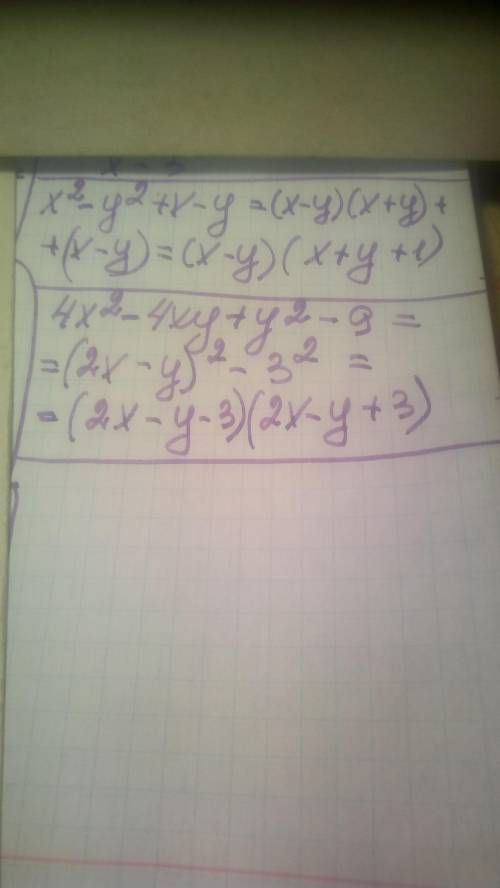 x - 3
x² - y² + x - y = (x-y)(x+y) +
+(x-y) = (x-y)(x+y+1)
4x² - 4xy + y² - 9 =
=(2x - y)² - 3² =
=(2x - y - 3)(2x - y + 3)